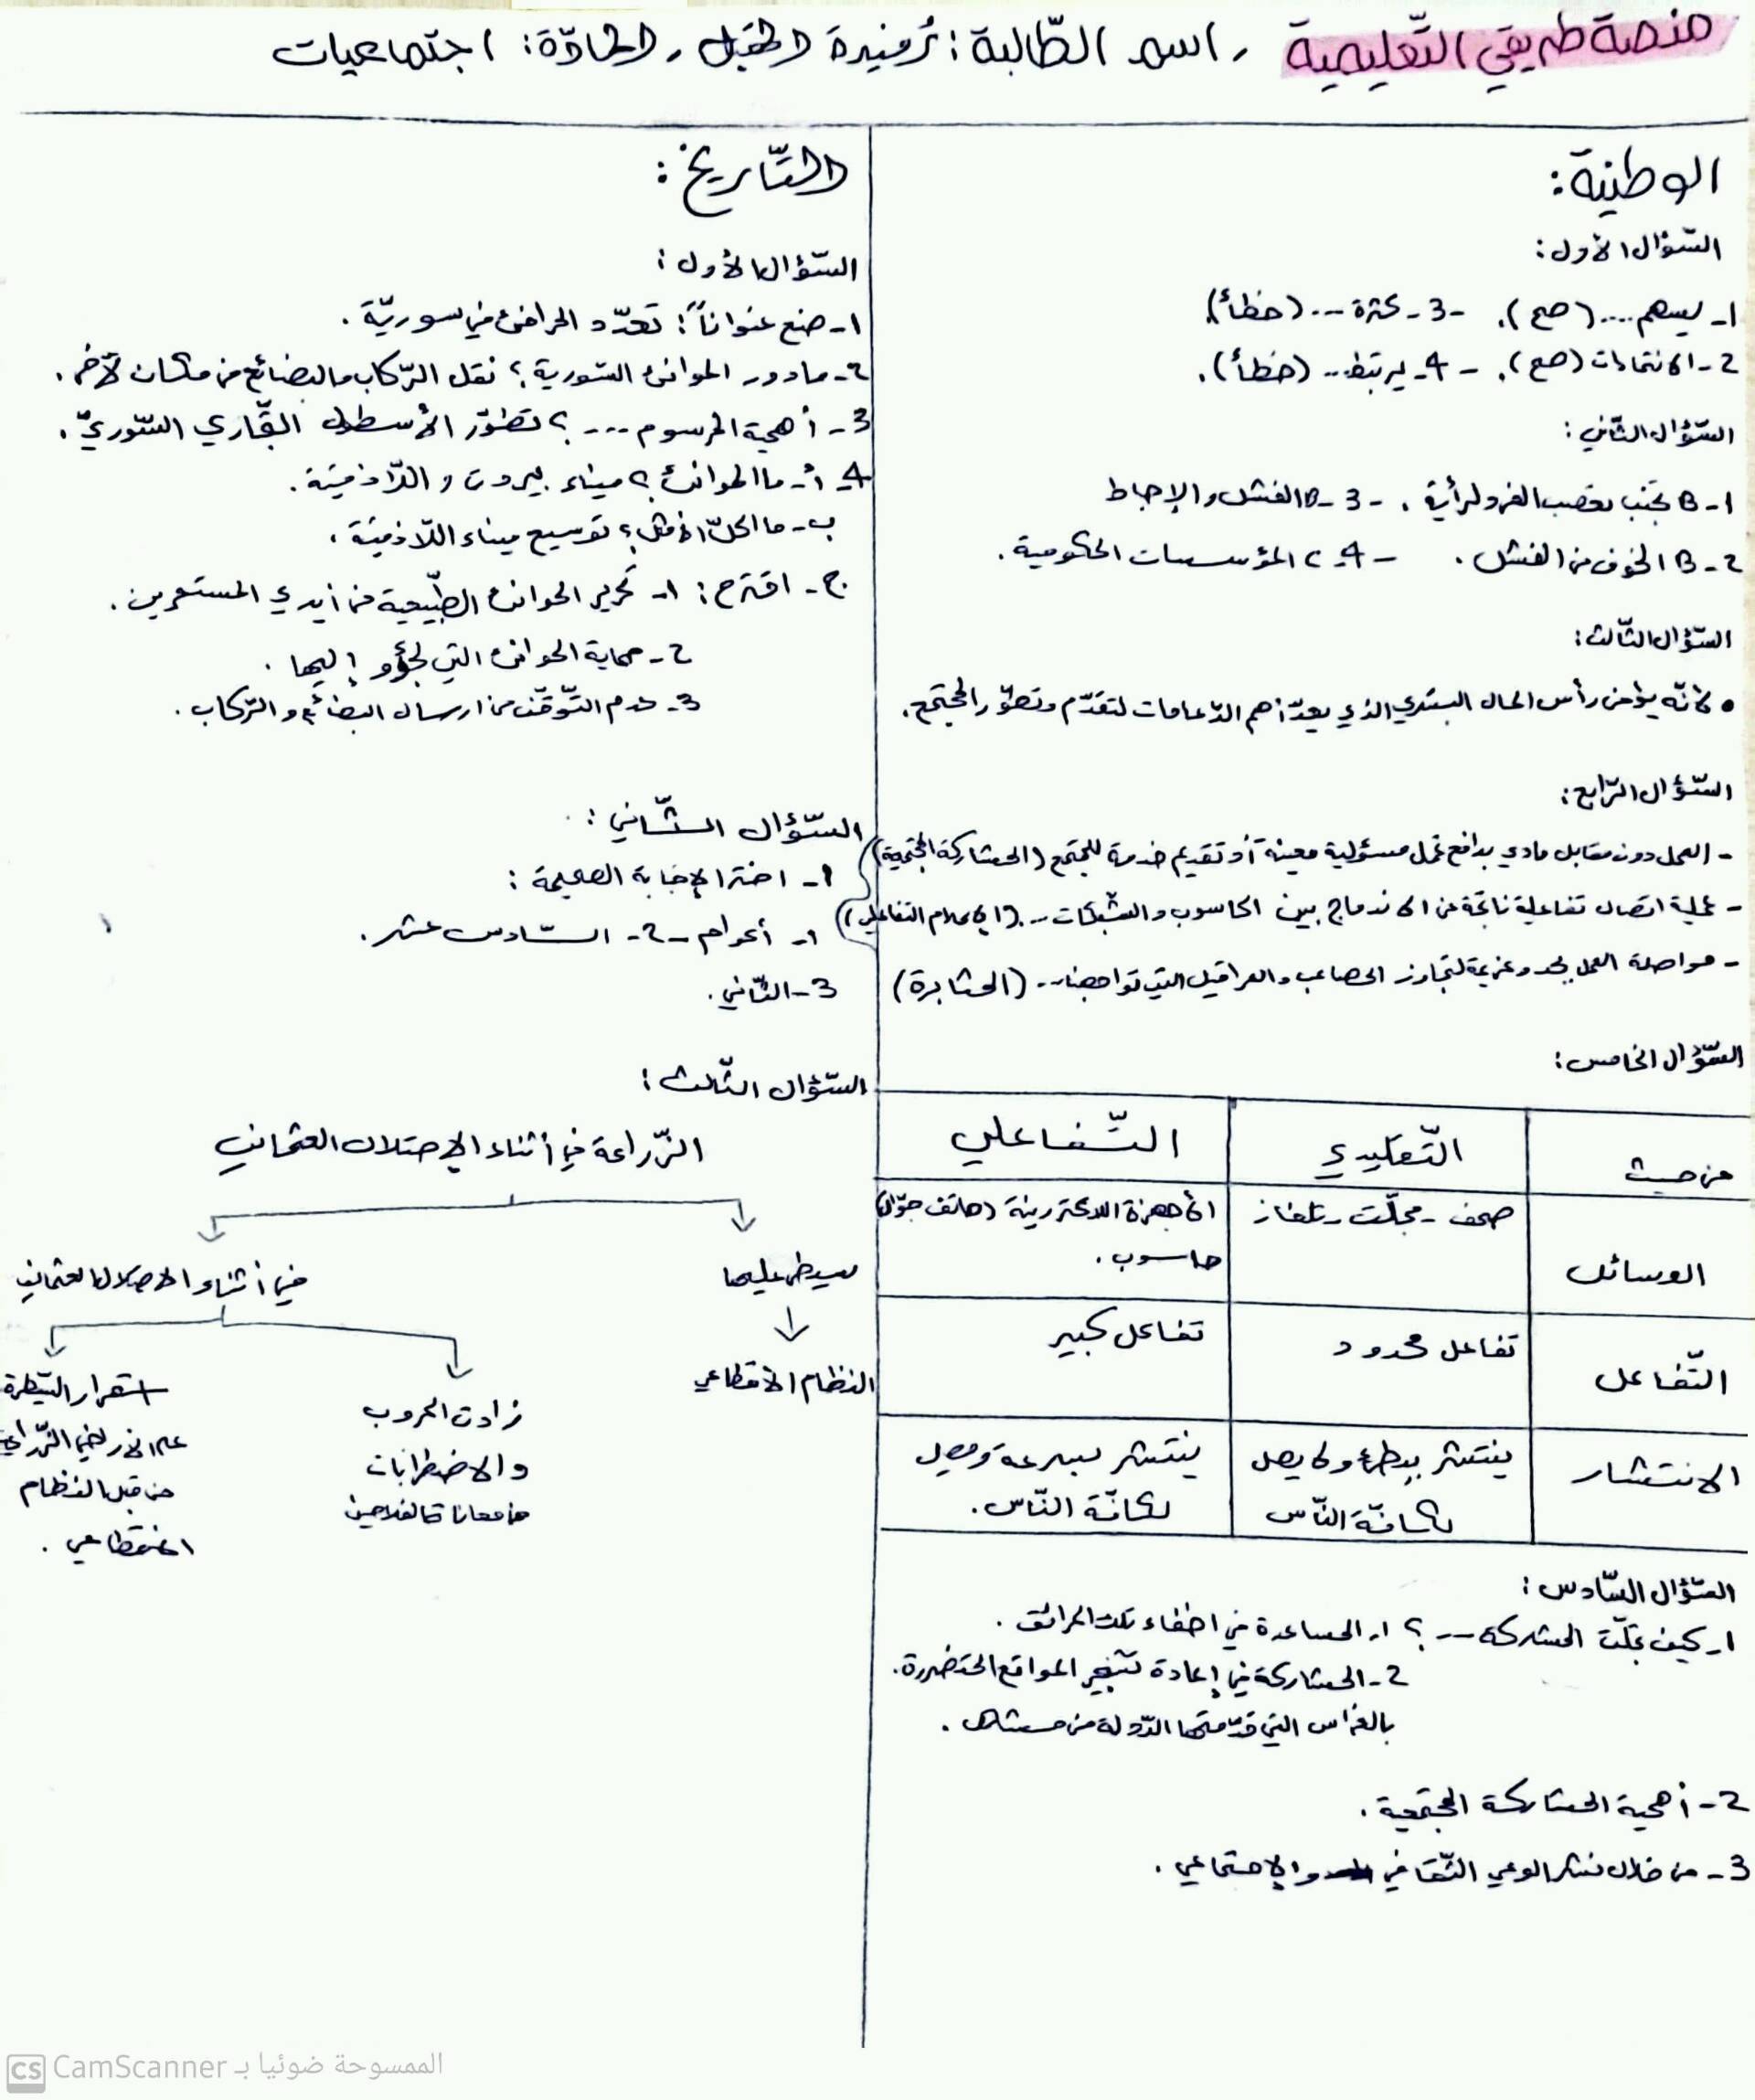 منصة طريقي التّعليمية ، اسم الطّالبة: المقبل ، المادّة: اجتماعيات
الوطنية:
السّؤال الأول:
1- يسهم .... (صح). - 3- كثرة ... (خطأ).
2- الانتماءات (صح). - 4- يرتبط... (خطأ).
السّؤال الثّاني:
1- B تجنب تعصب الفرد لرأية. - 3- B الفشل والإحباط
2- B الخوف من الفشل. - 4- c المؤسسات الحكومية.
السّؤال الثّالث:
• لأنّه يؤمن رأس المال البشري الذي يعدّ أهم الدّعامات لتقدّم وتطوّر المجتمع.
السّؤال الرّابع:
- العمل دون مقابل مادي بدافع تحمل مسؤولية معينة أو تقديم خدمة للمجتمع (المشاركة المجتمعية)
- عملية اتصال تفاعلية ناتجة عن الاندماج بين الحاسوب والشبكات ... (الإعلام التفاعلي)
- مواصلة العمل بجد وعزيمة لتجاوز المصاعب والعراقيل التي تواجهنا... (المثابرة)
السّؤال الخامس:
من حيث التّقليدي التّفاعلي
الوسائل صحف - مجلّت - تلفاز الأجهزة الالكترونية (هاتف جوّال)
حاسوب.
التّفاعل تفاعل محدود تفاعل كبير
الانتشار ينتشر ببطئ ولا يصل ينتشر بسرعة ويصل
لكافّة النّاس لكافّة النّاس.
السّؤال السّادس:
1- كيف تجلّت المشاركة ... ؟ 1- المساعدة في اطفاء تلك الحرائق.
2- المشاركة في إعادة تشجير المواقع المتضررة.
بالغراس التي قدّمتها الدّولة من
2- أهمية المشاركة المجتمعية.
3- من خلال نشر الوعي الثّقافي والإجتماعي.
التّاريخ:
السّؤال الأول:
1- ضع عنواناً: تعدّد المرافئ في سوريّة.
2- ما دور الموانئ السّورية؟ نقل الرّكاب والبضائع من مكان لآخر.
3- أهمية المرسوم ... ؟ تطوّر الأسطول التّجاري السّوريّ.
4- أ- ما الموانئ؟ ميناء بيروت و اللّاذقيّة.
ب- ما الحلّ الأمثل؟ توسيع ميناء اللّاذقيّة.
ج- اقترح: 1- تحرير الموانئ الطّبيعية من أيدي المستعمرين.
2- حماية الموانئ التي لجؤو إليها.
3- عدم التّوقّف من ارسال البضائع والرّكاب.
السّؤال الثّاني:
1- اختر الإجابة الصحيحة:
1- أعوام - 2- السّادس عشر.
3- الثّاني.
السّؤال الثّالث:
الزّراعة في أثناء الإحتلال العثماني
سيطر عليها في أثناء الاحتلال العثماني
النظام الاقطاعي
زادت الحروب
والاضطرابات
من معاناة الفلاحين
استمرار السّيطرة
على الأراضي الزّراعية
من قبل النظام
الاقطاعي.
الممسوحة ضوئيا بـ CamScanner
CS